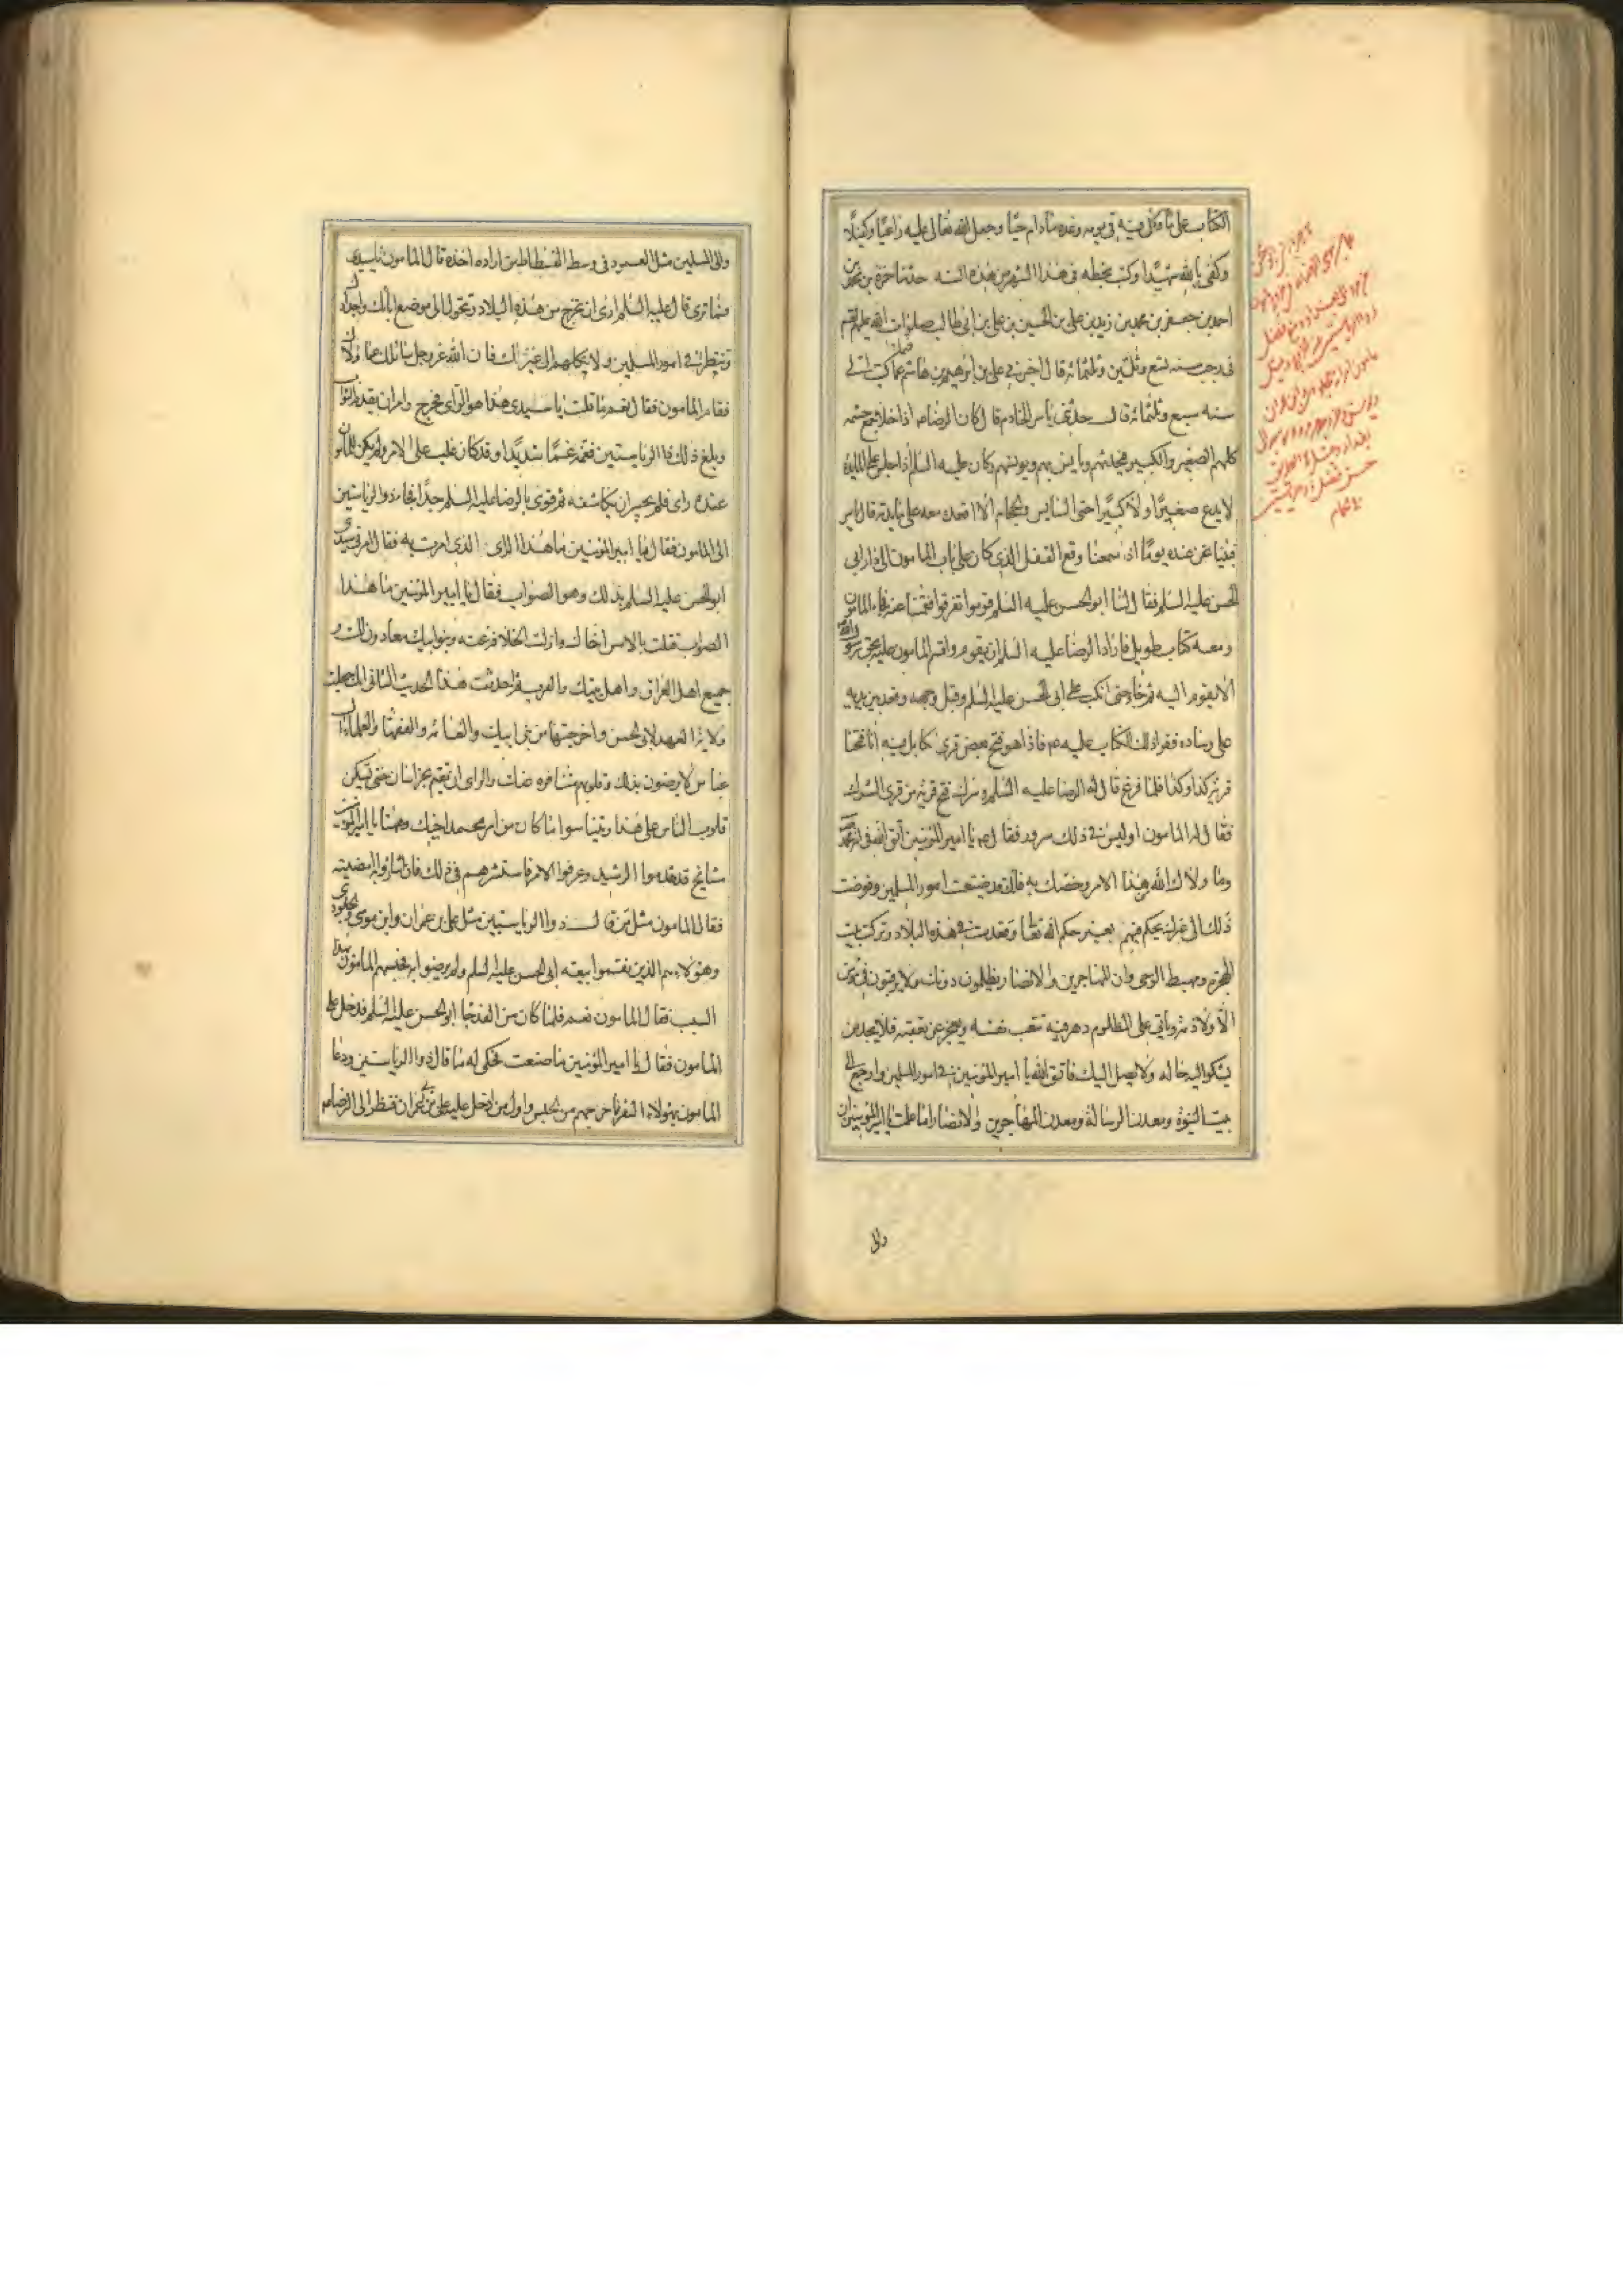 الكتاب على ما وكل فيه في يومه وغده ما دام حيا وجعل الله تعالى عليه راعيا وكفيلا
وكفى بالله شهيدا وكتب بخطه في هذا الشهر من هذه السنه حدثنا حمزة بن محمد بن
احمد بن جعفر بن محمد بن زيد بن علي بن الحسين بن علي بن ابي طالب صلوات الله عليهم بقم
في رجب سنه تسع وثلثين وثلثمائه قال اخبرني علي بن ابرهيم بن هاشم فيما كتب الي
سنه سبع وثلثمائه قال حدثني ياسر الخادم قال كان الرضا ع اذا خلا جمع حشمه
كلهم الصغير والكبير فيحدثهم ويانس بهم ويونسهم وكان عليه السلم اذا جلس على المائدة
لا يدع صغيرا ولا كبيرا حتى السايس والحجام الا اقعده معه على مايدته قال ياسر
فبينا نحن عنده يوما اذ سمعنا وقع القفل الذي كان على باب المامون الى دار ابي
الحسن عليه السلم فقال لنا ابو الحسن عليه السلم قوموا تفرقوا فقمنا عنه فجاء المامون
ومعه كتاب طويل فاراد الرضا عليه السلم ان يقوم فاقسم المامون عليه بحق رسول الله
الا يقوم اليه ثم جاء حتى انكب على ابي الحسن عليه السلم وقبل وجهه وقعد بين يديه
على وساده فقرا ذلك الكتاب عليه ع فاذا هو فتح لبعض قرى كابل فيه انا فتحنا
قريه كذا وكذا فلما فرغ قال له الرضا عليه السلم وسرك فتح قريه من قرى الشرك
فقال له المامون اوليس في ذلك سرور فقال ع يا امير المؤمنين اتق الله في امة محمد ص
وما ولاك الله من هذا الامر وخصك به فانك قد ضيعت امور المسلمين وفوضت
ذلك الى غيرك يحكم فيهم بغير حكم الله تعالى وقعدت في هذه البلاد وتركت بيت
الهجرة ومهبط الوحي وان المهاجرين والانصار يظلمون دونك ولا يرقبون في مؤمن
الا ولا ذمة وياتي على المظلوم دهر فيه تتعب نفسه ويعجز عن نفقته فلا يجد من
يشكو اليه حاله ولا يصل اليك فاتق الله يا امير المؤمنين في امور المسلمين وارجع الى
بيت النبوة ومعدن الرسالة ومعدن المهاجرين والانصار اما علمت يا امير المؤمنين ان
والي
والي المسلمين مثل العمود في وسط الفسطاط من اراده اخذه قال المامون يا سيدي
فما ترى قال عليه السلم ارى ان تخرج من هذه البلاد وتتحول الى موضع ابائك واجدادك
وتنظر في امور المسلمين ولا تكلهم الى غيرك فان الله عز وجل سائلك عما ولاك
فقام المامون فقال نعم ما قلت يا سيدي هذا هو الراي فخرج وامر ان يقدم النوائب
وبلغ ذلك ذا الرياستين فغمه غما شديدا وقد كان غلب على الامر ولم يكن للمامون
عنده راى فلم يجسر ان يكاشفه ثم قوي بالرضا عليه السلم جدا فجاء ذو الرياستين
الى المامون فقال يا امير المؤمنين ما هذا الراى الذي امرت به فقال امرني سيدي
ابو الحسن عليه السلم بذلك وهو الصواب فقال يا امير المؤمنين ما هذا
الصواب قتلت بالامس اخاك وازلت الخلافة عنه وبنوا ابيك معادون لك و
جميع اهل العراق واهل بيتك والعرب ثم احدثت هذا الحدث الثاني انك جعلت
ولاية العهد لابي الحسن واخرجتها من بني ابيك والعامة والفقهاء والعلماء وال
عباس لا يرضون بذلك وقلوبهم متنافره عنك والراى ان تقيم بخراسان حتى تسكن
قلوب الناس على هذا ويتناسوا ما كان من امر محمد اخيك وههنا يا امير المؤمنين
مشايخ قد خدموا الرشيد وعرفوا الامر فاستشرهم في ذلك فان اشاروا به امضيته
فقال المامون مثل من قال ذو الرياستين مثل علي بن عمران وابن مونس والجلودي
وهؤلاء هم الذين نقموا بيعة ابي الحسن عليه السلم ولم يرضوا به فحبسهم المامون بهذا
السبب فقال المامون نعم فلما كان من الغد جاء ابو الحسن عليه السلم فدخل على
المامون فقال يا امير المؤمنين ما صنعت فحكى له ما قال ذو الرياستين ودعا
المامون بهؤلاء النفر فاخرجهم من الحبس واول من ادخل عليه علي بن عمران فنظر الى الرضا ع